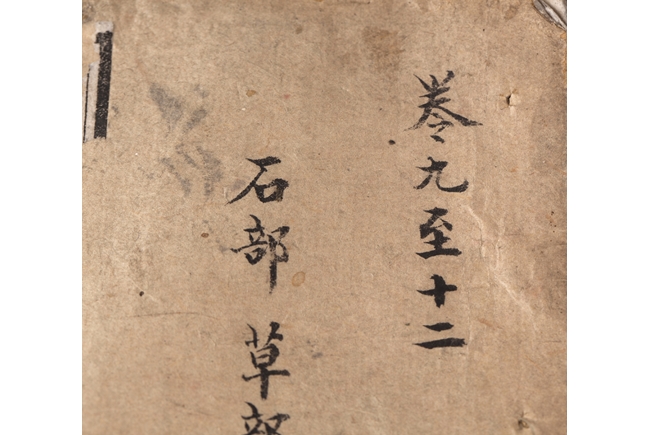 卷九至十二
石部 草部